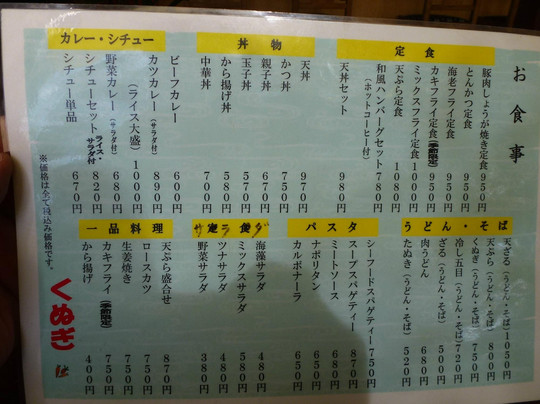 お食事
定食
豚肉しょうが焼き定食 950円
とんかつ定食 950円
海老フライ定食 950円
カキフライ定食(季節限定) 950円
ミックスフライ定食 1000円
天ぷら定食 1080円
和風ハンバーグセット 780円
(ホットコーヒー付)
天丼セット 980円
丼物
天丼 970円
かつ丼 750円
親子丼 670円
玉子丼 570円
から揚げ丼 580円
中華丼 700円
カレー・シチュー
ビーフカレー 600円
カツカレー(サラダ付) 890円
(ライス大盛) 1000円
野菜カレー(サラダ付) 680円
シチューセット ライス・サラダ付 820円
シチュー単品 670円
うどん・そば
天ざる(うどん・そば) 1050円
天ぷら(うどん・そば) 800円
くぬぎ(うどん・そば) 750円
冷し五目(うどん・そば) 720円
ざる(うどん・そば) 500円
肉うどん 680円
たぬき(うどん・そば) 520円
パスタ
シーフードスパゲティー 750円
スープスパゲティー 870円
ミートソース 680円
ナポリタン 650円
カルボナーラ 650円
サラダ
海藻サラダ 480円
ミックスサラダ 580円
ツナサラダ 480円
野菜サラダ 380円
一品料理
天ぷら盛合せ 870円
ロースカツ 750円
生姜焼き 750円
カキフライ(季節限定) 750円
から揚げ 400円
※価格は全て税込み価格です。
くぬぎ